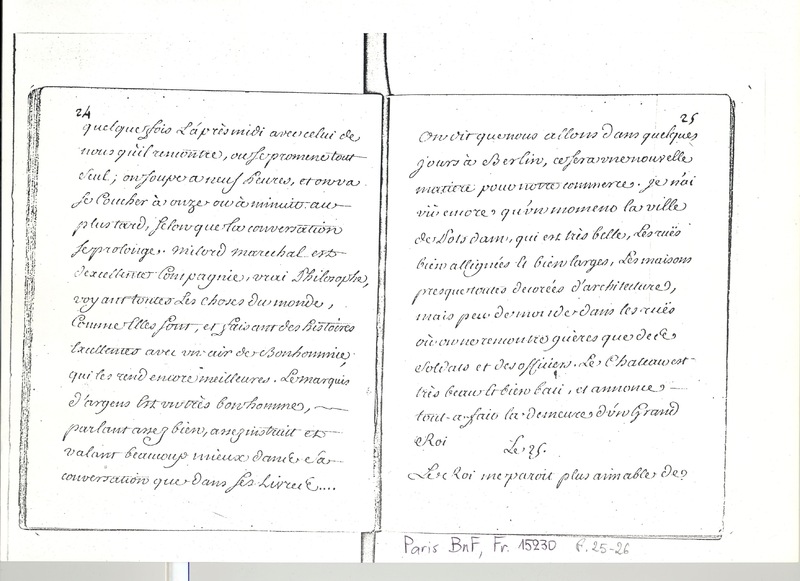 24
quelques fois L'après midi avec celui de
nous qu'il rencontre, ou se promene tout
seul; on soupe a neuf heures, et on va
se Coucher à onze ou à minuit au
plus tard, selon que la conversation
se prolonge. Milord marechal est
d'excellente Compagnie, vrai Philosophe,
voyant toutes Les choses du monde,
Comme Elles sont, et faisant des histoires
Excellentes avec un air de Bonhommie,
qui les rend encore meilleures. Le marquis
d'argens Est un très bon homme,
parlant assez bien, assez instruit et
valant beaucoup mieux dans sa
conversation que dans ses Livres....
25
On dit que nous allons dans quelques
jours à Berlin, ce sera une nouvelle
matiere pour notre commerce. je n'ai
vû encore qu'un moment la ville
de Potsdam, qui est très belle, Les rues
bien allignées et bien larges, Les maisons
presque toutes decorées d'architecture,
mais peu de monde dans les rues
où on ne remontre guères que des
Soldats et des officiers. Le Chateau est
très beau et bien bati, et annonce
tout-a-fait la demeure d'un Grand
Roi
Le 25.
Le Roi me paroit plus aimable de
Paris BnF, Fr. 15230 f. 25-26